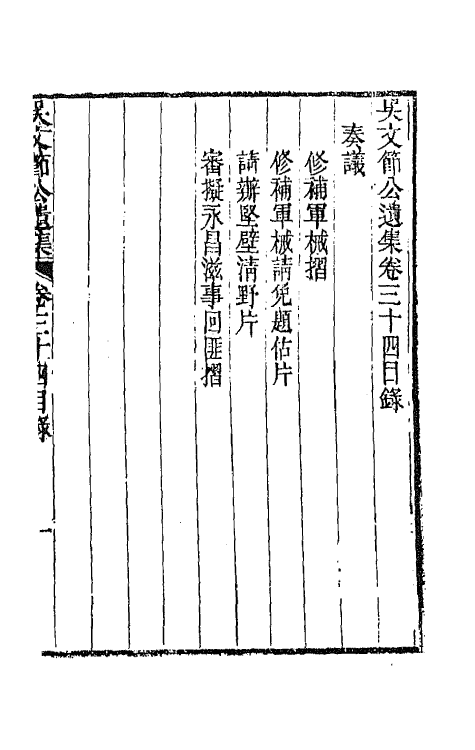 吳文節公遺集卷三十四目錄
奏議
修補軍械摺
修補軍械請免題估片
請辦堅壁淸野片
審擬永昌滋事回匪摺
吳文節公遺集 卷三十四目錄 一